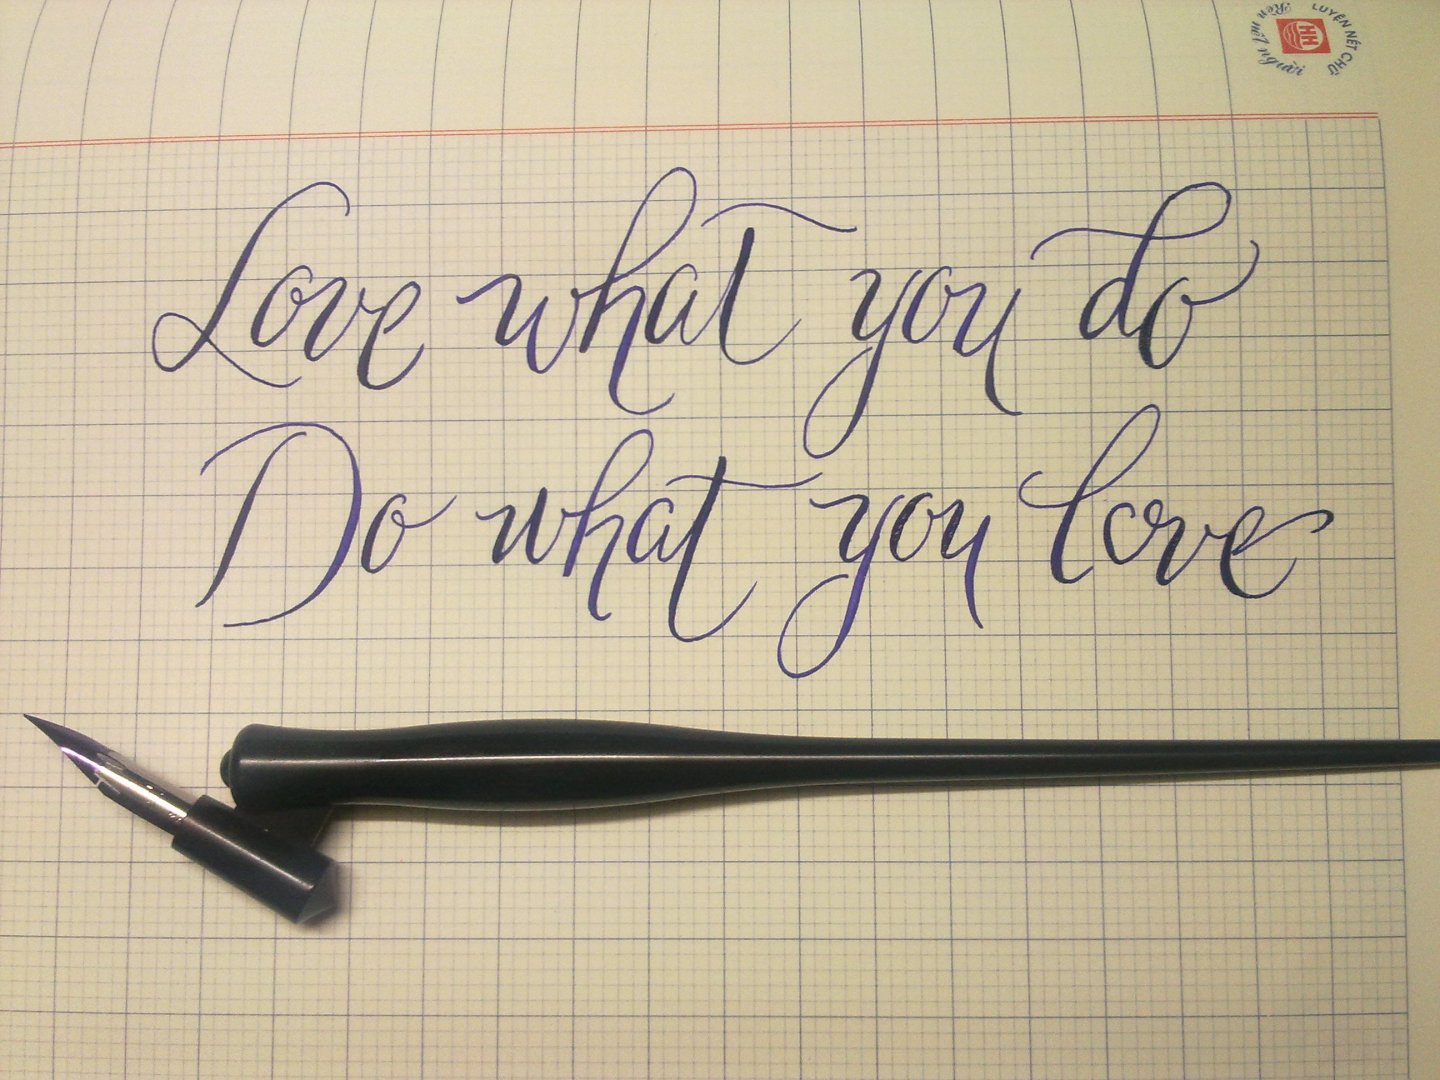 LUYỆN NÉT CHỮ
Rèn nết người
HH
Love what you do
Do what you love